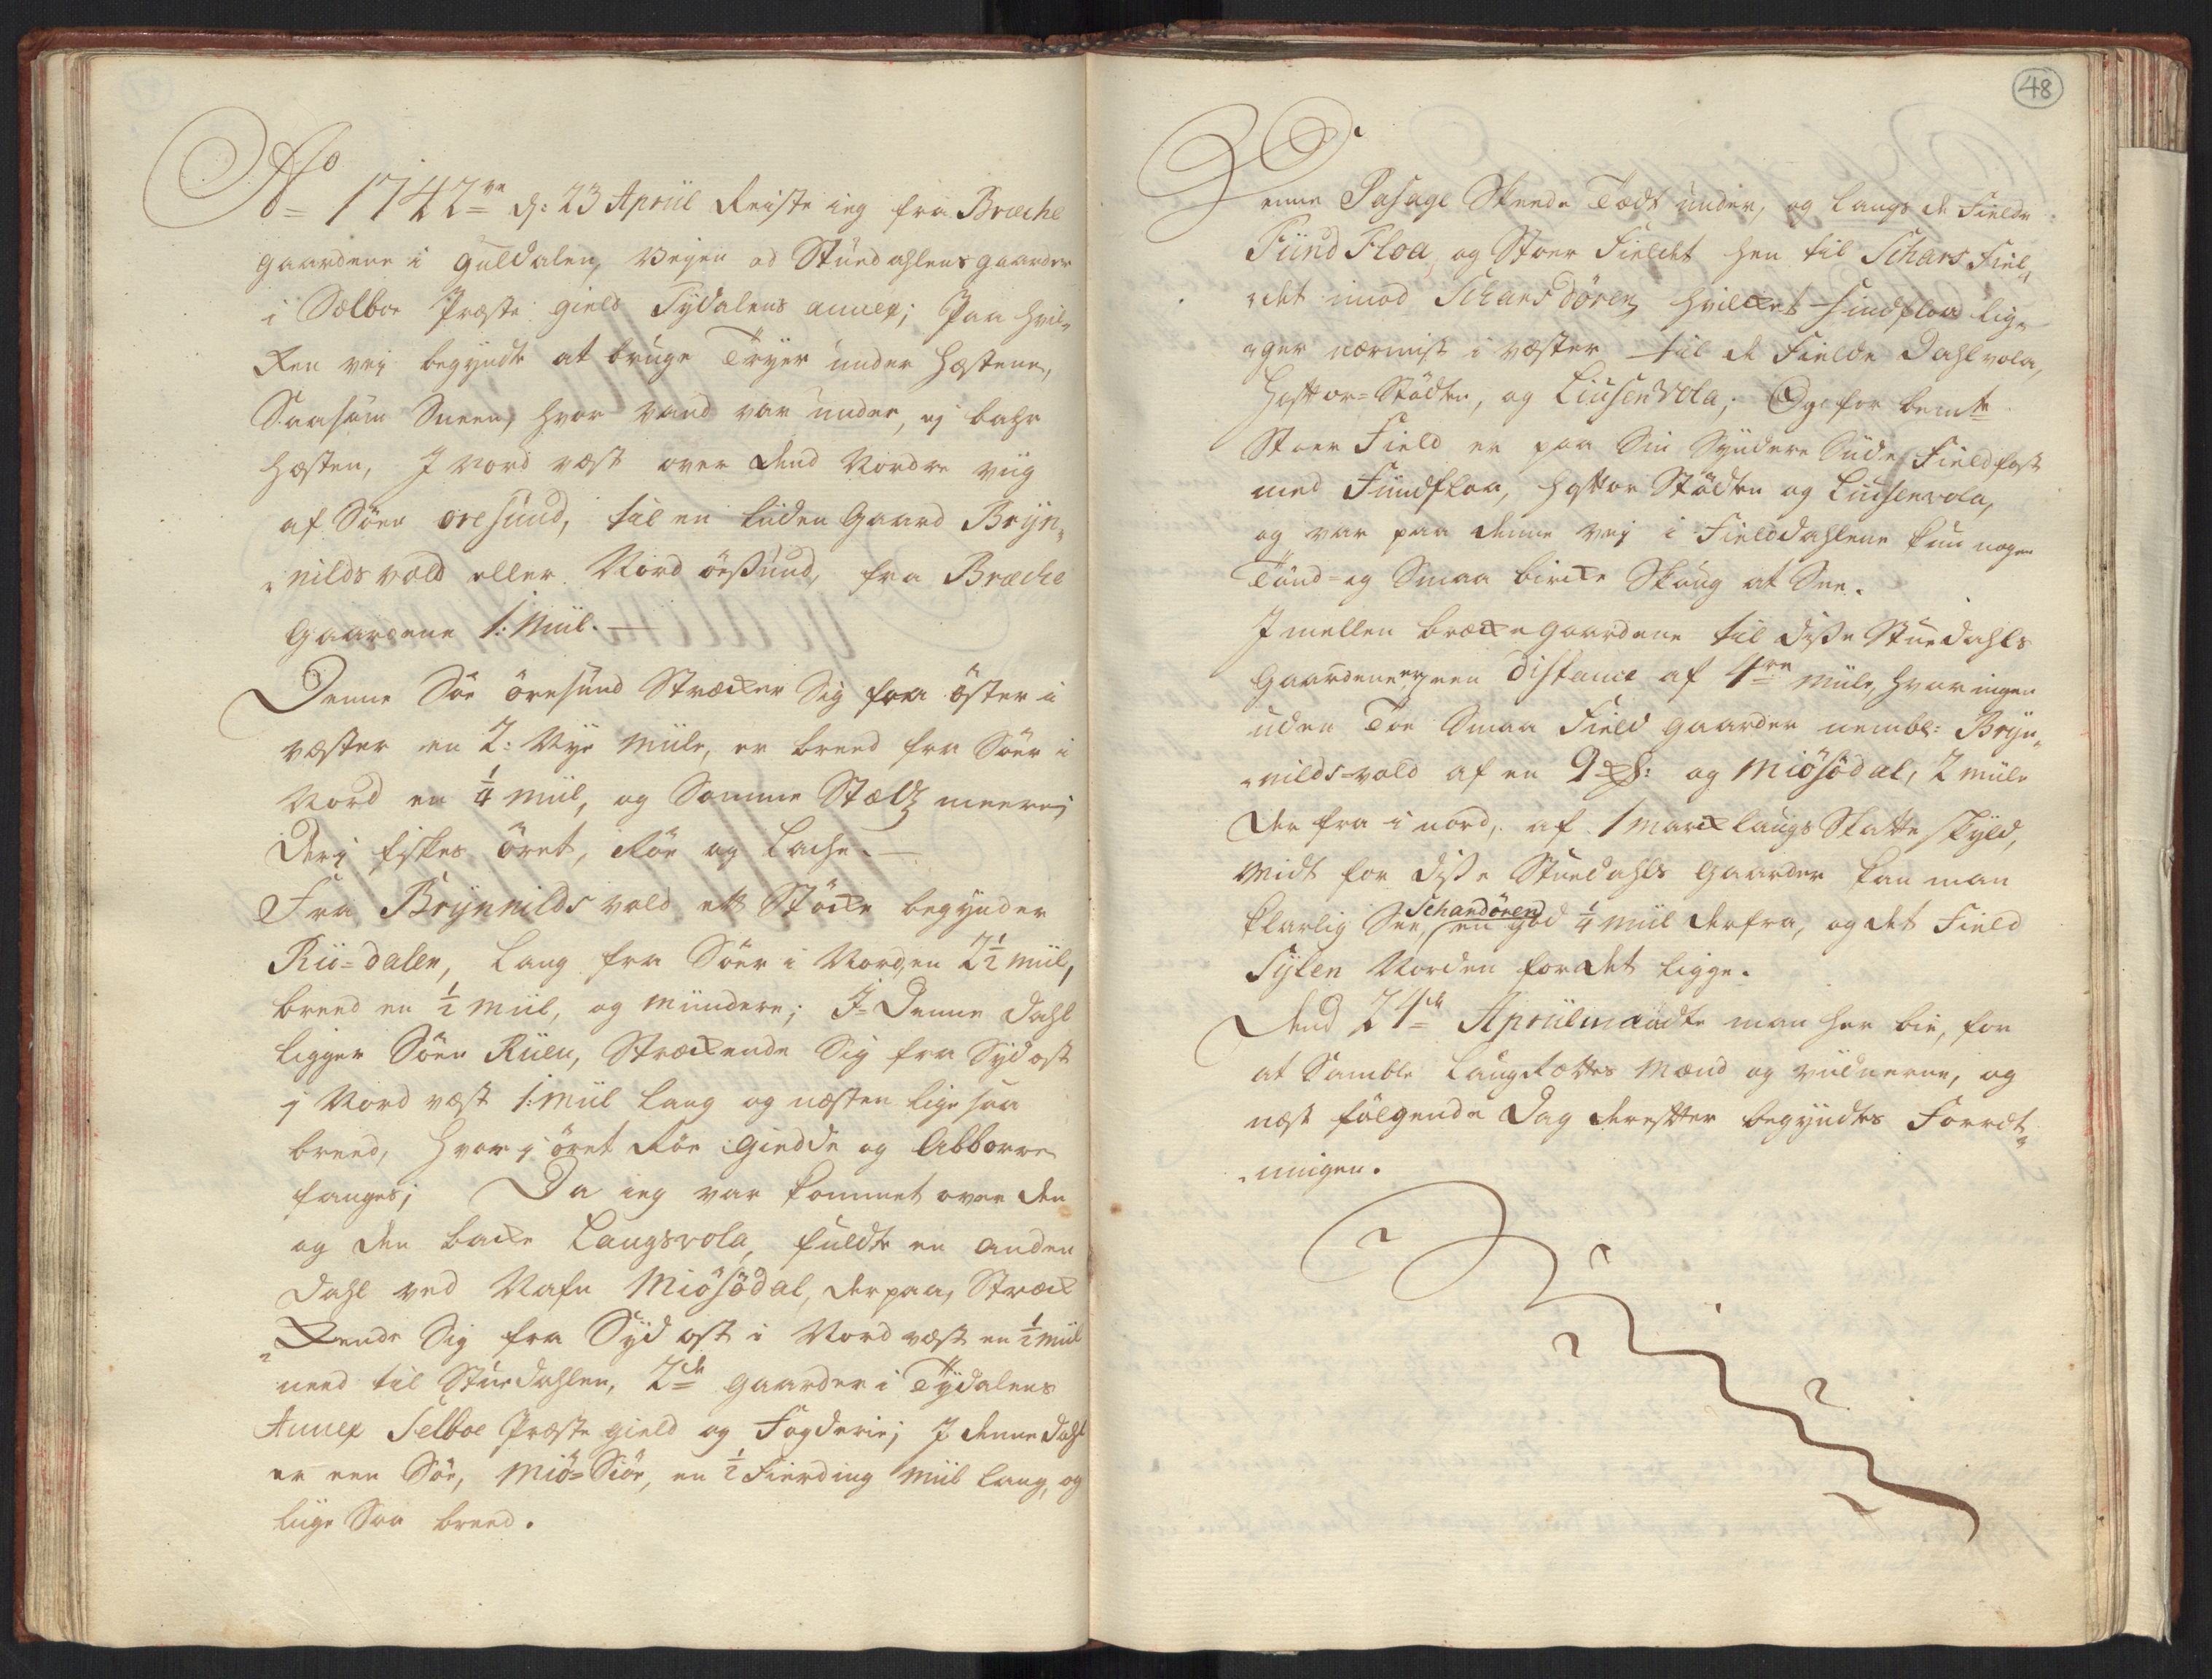 Ao 1742ve d: 23 Apriil Reiste ieg fra Bræche
gaardene i Guldalen, Veyen ad Stuedahlens gaarder
i Sælboe Præste gield Tydalens annex; Paa hvil„
ken vey begyndte at bruge Tryer under Hæstene,
Saasom Sneen, hvor vand var under, ej bahr
Hæsten, J Nord væst over dend Nordre viig
af Söen öresund, til en liden Gaard Bryn„
„nilds vold eller Nord öresund, fra Bræche
Gaardene 1: Miil.
Denne Söe öresund Strecker Sig fra öster i
væster en 2: Nye Miile, er breed fra Söer i
Nord en 1/4 Miil, og Somme Stæds meere;
Derj fiskes öret, Röe og Lache.
Fra Brynnilds vold ett Stöcke begynder
Rii=dalen, lang fra Söer i Norden 2 1/2 Miil,
breed en 1/2 Miil, og mindere; J Denne Dahl
ligger Söen Riien, Streckende Sig fra Sydost
j Nord væst 1: Miil lang og næsten lige saa
breed, Hvor j öret Röe giedde og Abborre
fanges; Da ieg var kommet over den
og den backe Langsvola, fuldte en anden
Dahl ved Nafn Miösödal, derpaa, Streck
„kende Sig fra Syd ost i Nord væst en 1/2 Miil
need til Stuedahlen, 2de gaarder i Tydalens
Annex Selboe Præste gield og Fogderie; J denne Dahl
er een Söe, Miö=Siöe, en 1/2 Fierding Miil lang, og
liige Saa breed.
48
Denne Pasage Skeede Tædt under, og langs de Fielde
Fiind Floa, og Stoer Fieldet hen til Schars Fiel„
„det imod Schardören, hvilcket Findfloa lig„
„ger nærmest i væster til de Fielde Dahlvola,
Hættor=Stödten, og Liusenvola; Og for bemte
Stoer Field er paa Sin Syndere Siide Fieldfast
med Fiindfloa, Hættor Stödten og Liusenvola,
og var paa denne vey i Fielddahlene kun nogen
Tünd=og Smaa bircke Skoug at See.
J mellen brecke gaardene til disse Stuedahls
Gaardene er een distance af 4re Miile, hvor ingen
uden Toe Smaa Field gaarder nembl: Bryn„
„nilds=vold af en 9: og Miösödal, 2 Miile
der fra i nord, af 1 marcklaugs Skatte skyld,
Midt for disse Stuedahls Gaarder kan man
klarlig See, Schardören en god 1/4 Miil derfra, og det Field
Sylen Norden for det ligge.
Dend 24de Apriil maadte man her bie, for
at Samble Laugrættes Mænd og viidnerne, og
næst fölgende Dag derefter begyndtes Forret„
„ningen.